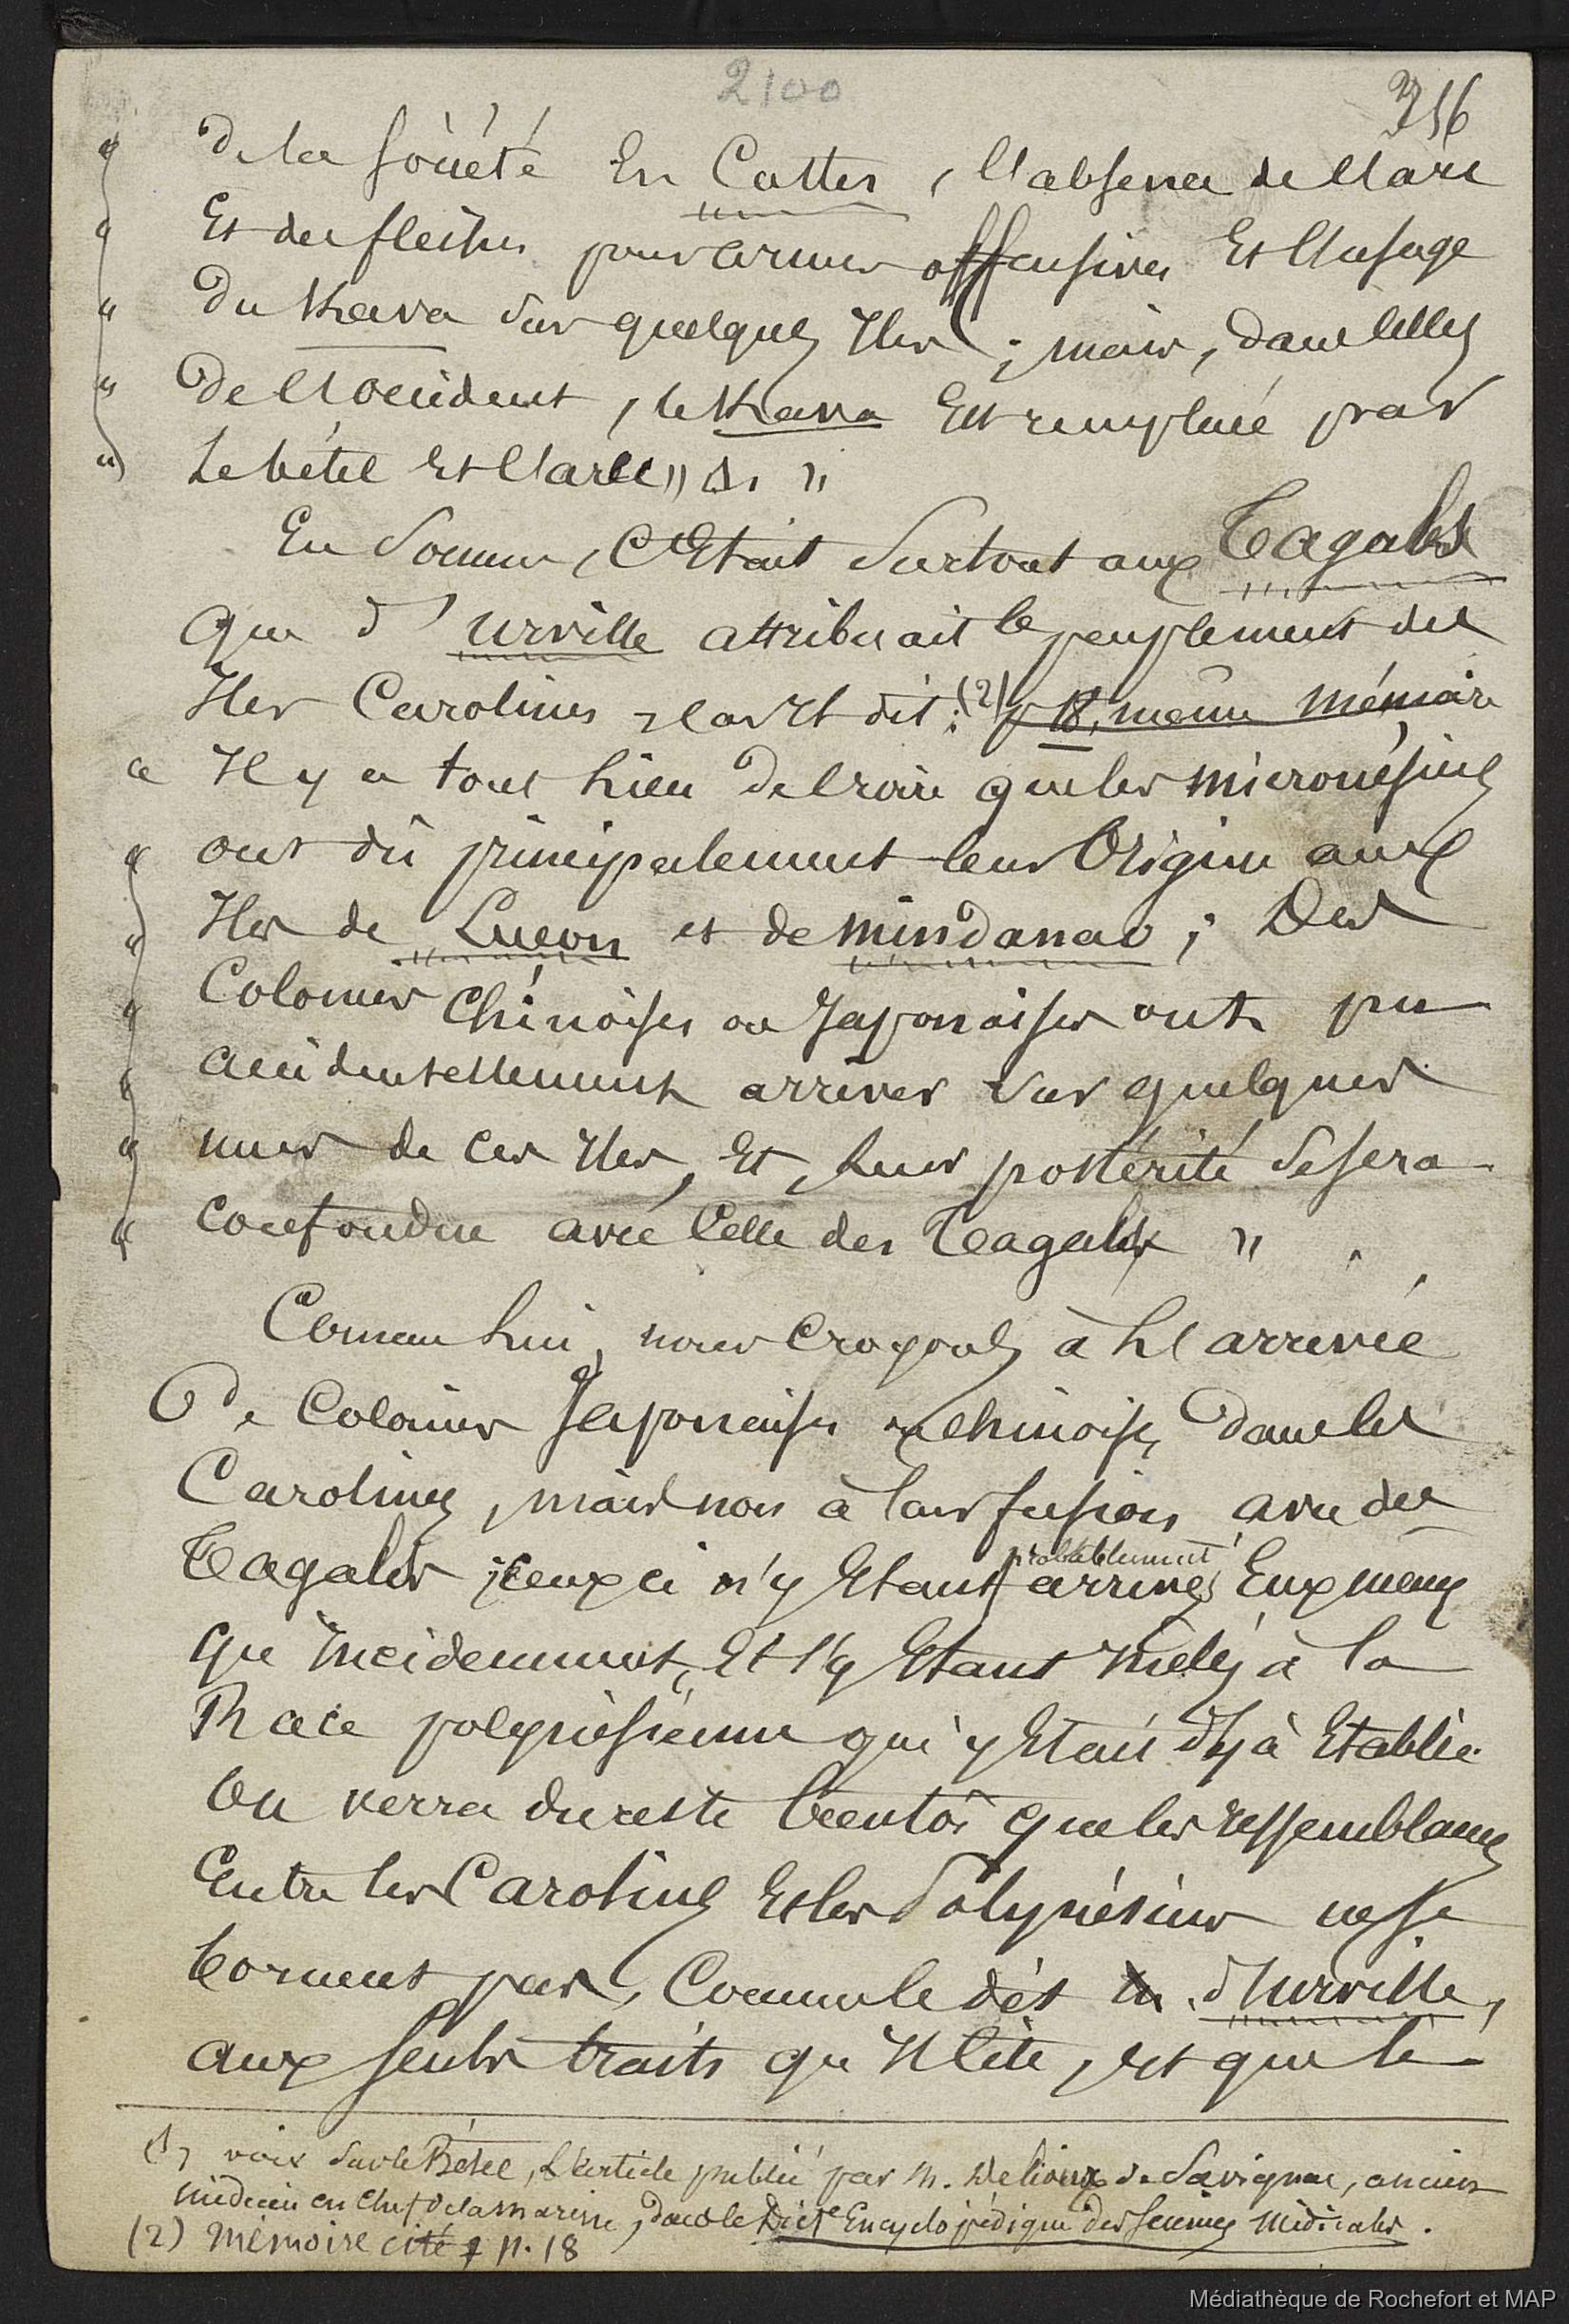 2100
356
" de la société en Castes, l'absence de l'arc
" et des flèches pour armes offensives et l'usage
" du Kava sur quelques Iles ; mais, dans celles
" de l'occident, le Kava est remplacé par
") le bétel et l'arec" 1. "
En somme, c'était surtout aux Tagals
que d'Urville attribuait le peuplement des
Iles Carolines, car il dit : (2) p 18, même mémoire
" Il y a tout lieu de croire que les micronésiens
" ont dû principalement leur Origine aux
" Iles de Luçon et de Mindanao ; des
" Colonies Chinoises ou Japonaises ont pu
" accidentellement arriver sur quelques
" unes de ces Iles, et leur postérité se sera
" confondue avec celle des Tagals ".
Comme lui, nous croyons à l'arrivée
de Colonies Japonaises ou chinoises dans les
Carolines, mais non à leur fusion avec des
Tagals ; ceux ci n'y étant probablement arrivés eux mêmes
qu'incidemment, et s'y étant mêlés à la
Race polynésienne qui y était déjà établie.
On verra du reste bientôt que les ressemblances
entre les Carolins et les Polynésiens ne se
bornent pas, comme le dit M. d'Urville,
aux seuls traits qu'il cite, et que le
(1) voir sur le Bétel, l'article publié par M. Delioux de Savignac, ancien
médecin en chef de la marine, dans le Dict.re Encyclopédique des Sciences Médicales.
(2) Mémoire cité p. 18
Médiathèque de Rochefort et MAP